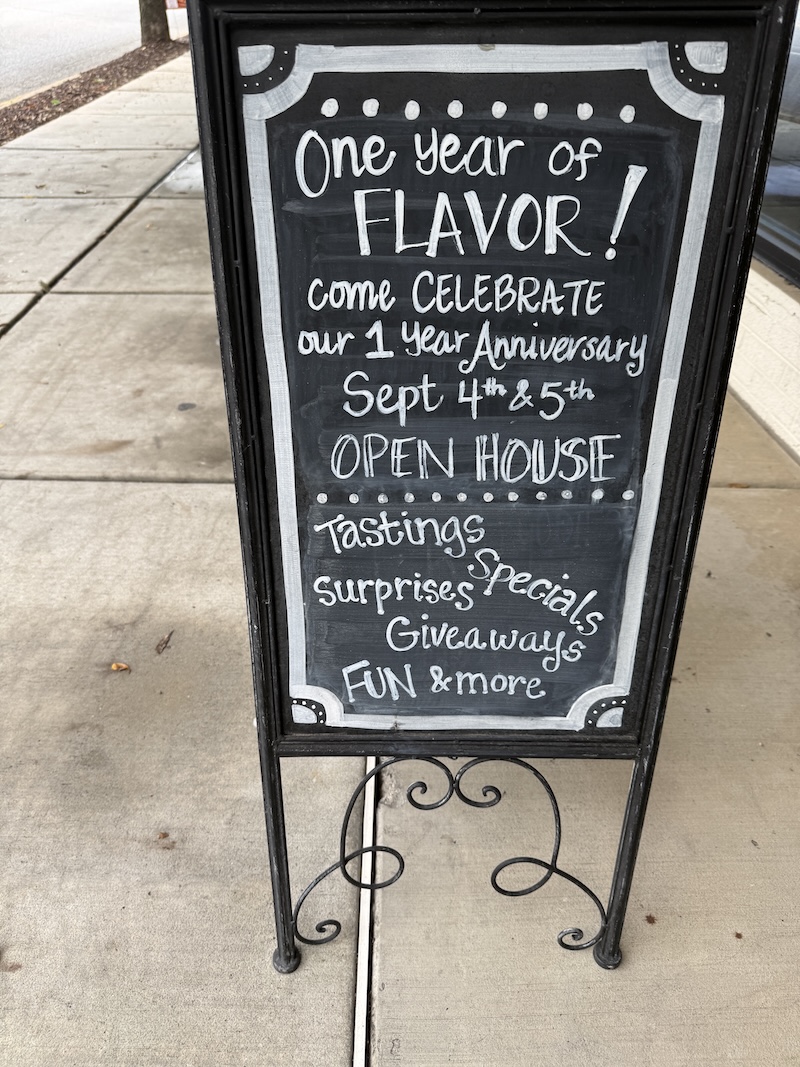 One year of
FLAVOR!
come CELEBRATE
our 1 year Anniversary
Sept 4th & 5th
OPEN HOUSE
Tastings
Specials
surprises
Giveaways
FUN & more